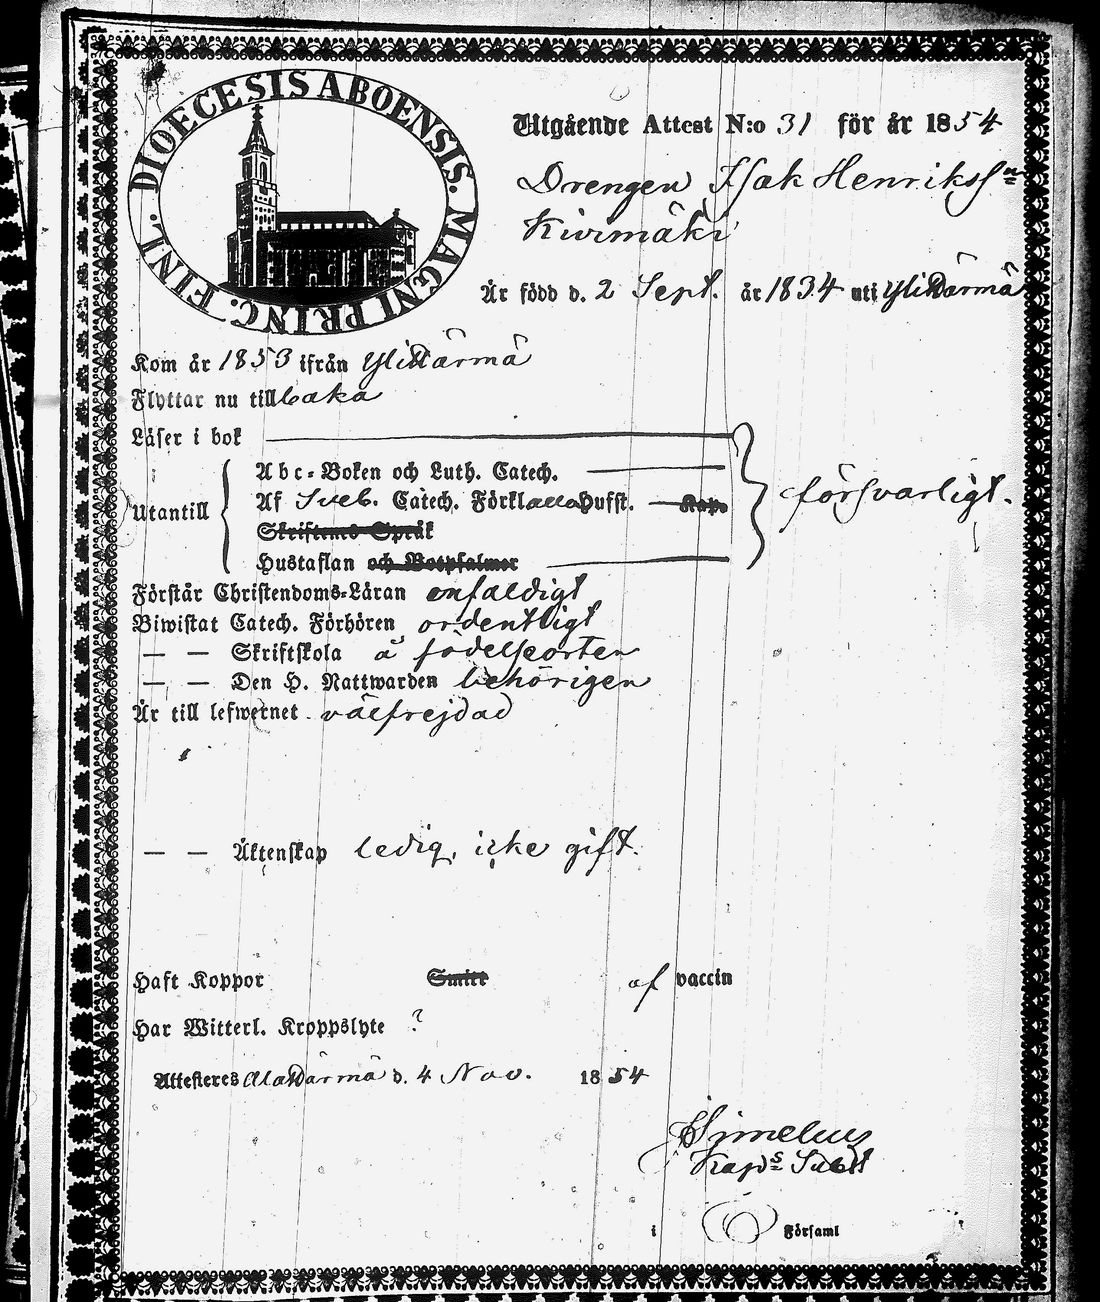 DIOECESIS ABOENSIS. MAGNI PRINC. FINL.
Utgående Attest N:o 31 för år 1854
Drengen Isak Henrikssn
Kivimäki
Är född d. 2 Sept. år 1834 uti YliHärmä
Kom år 1853 ifrån YliHärmä
Flyttar nu tillbaka
Läser i bok
Utantill
Abc-Boken och Luth. Catech.
Af Sveb. Catech. Förkl alla Hufst. Kap.
Skriftens Språk
Hustaflan och Botpsalmer
försvarligt.
Förstår Christendoms-Läran enfaldigt
Biwistat Catech. Förhören ordentligt
— — Skriftskola å födelseorten
— — Den H. Nattwarden behörigen
Är till lefwernet välfrejdad
— — Äktenskap ledig, icke gift.
Haft Koppor Smitt af vaccin
Har Witterl. Kroppslyte ?
Attesteres AlaHärmä d. 4 Nov. 1854
Simelius
Kaps Subst
i Församl